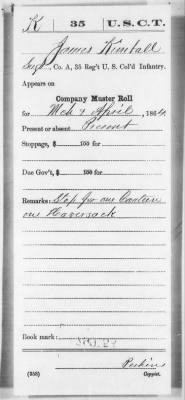 K | 35 | U.S.C.T.
James Kimball
Sergt, Co. A, 35 Reg't U. S. Col'd Infantry.
Appears on
Company Muster Roll
for Mch & April, 1864.
Present or absent Present
Stoppage, $ 100 for
Due Gov't, $ 100 for
Remarks: Stop for one Canteen
one Haversack
Book mark:
Perkins
(358) Copyist.